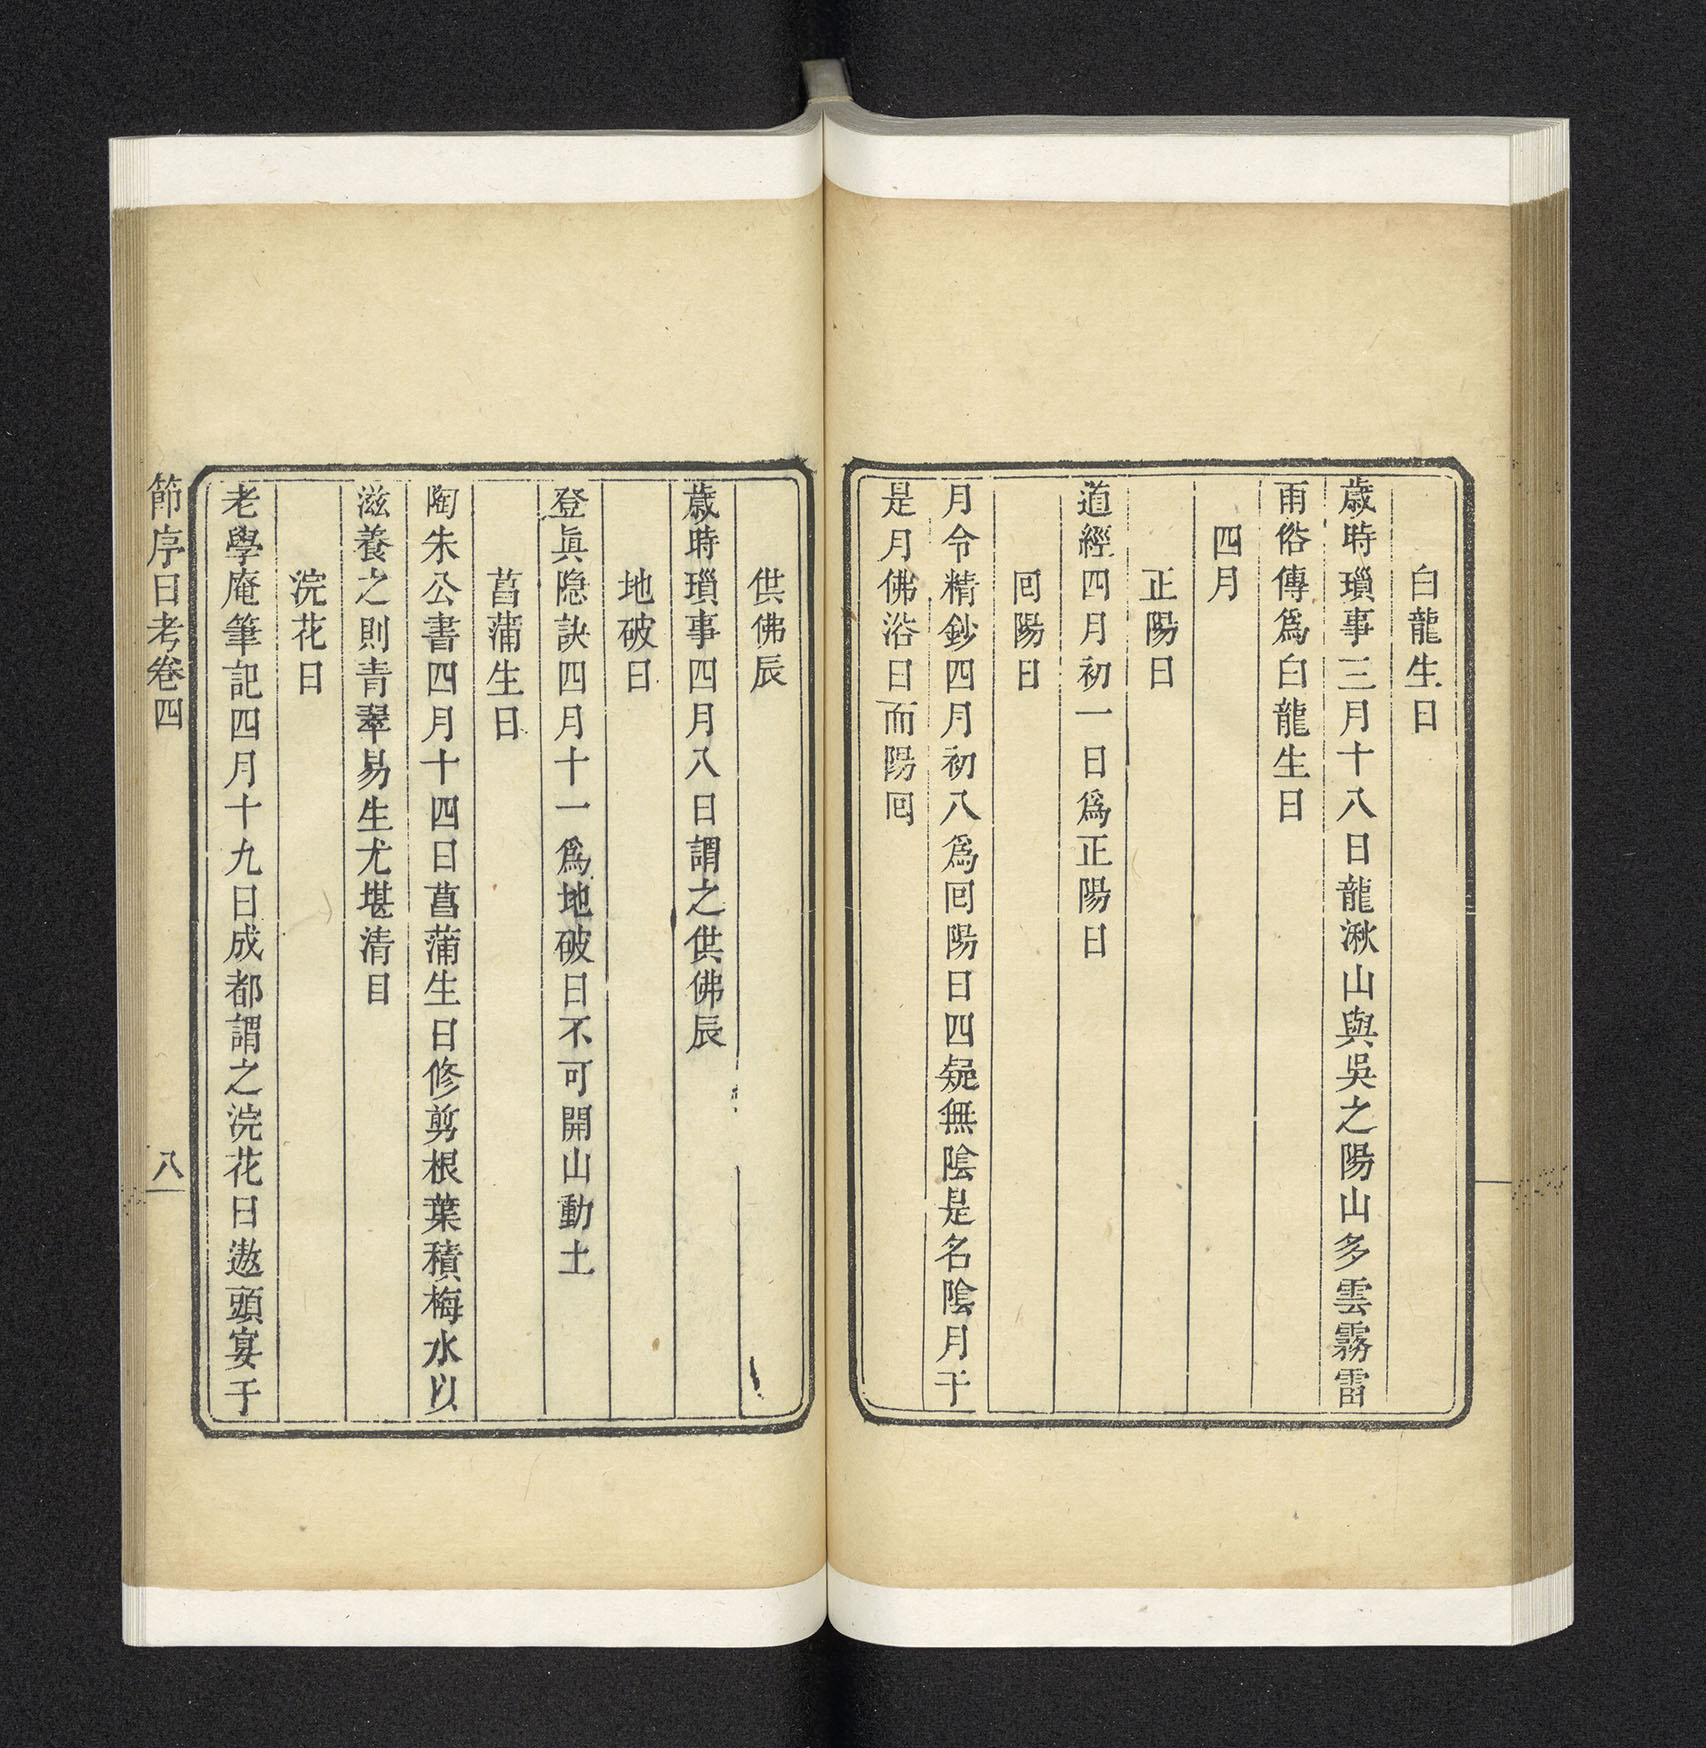 白龍生日
歲時瑣事三月十八日龍湫山與吳之陽山多雲霧雷
雨俗傳爲白龍生日
四月
正陽日
道經四月初一日爲正陽日
囘陽日
月令精鈔四月初八爲囘陽日四疑無陰是名陰月于
是月佛浴日而陽囘
供佛辰
歲時瑣事四月八日謂之供佛辰
地破日
登眞隐訣四月十一爲地破日不可開山動土
菖蒲生日
陶朱公書四月十四日菖蒲生日修剪根葉積梅水以
滋養之則青翠易生尤堪清目
浣花日
老學庵筆記四月十九日成都謂之浣花日遨頭宴于
節序日考卷四
八